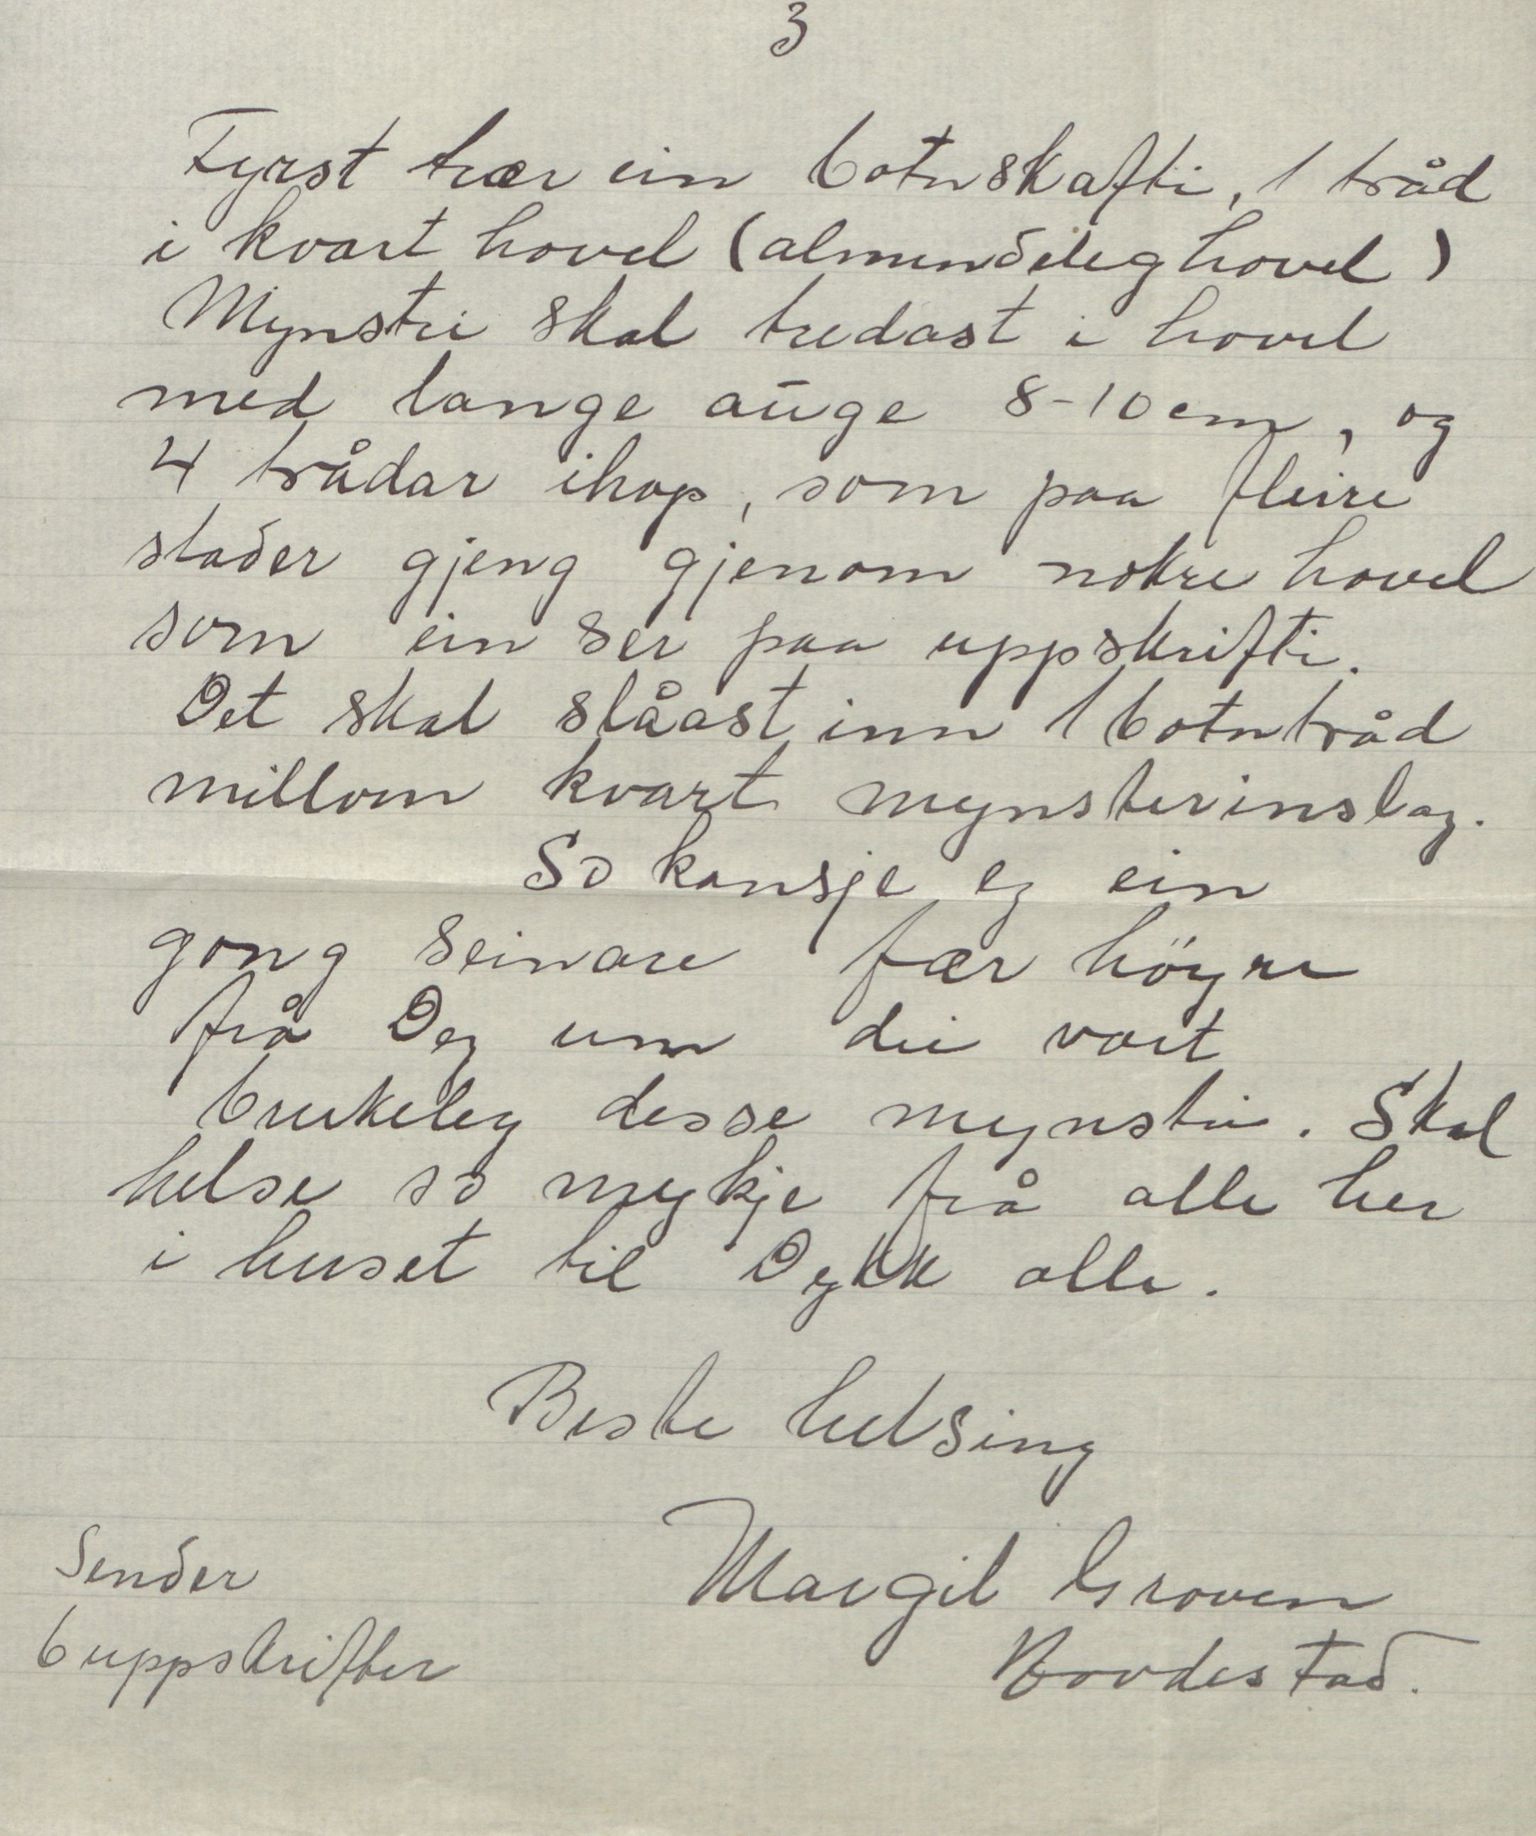 3
Fyrst trær ein botnskafti, 1 tråd
i kvart hovel (almindeleg hovel)
Mynstri skal tredast i hovel
med lange auge 8-10 cm, og
4 trådar ihop, som paa fleire
stader gjeng gjenom nokre hovel
som ein ser paa uppskrifti.
Det skal slåast inn 1 botntråd
millom kvart mynsterinslag.
So kansje eg ein
gong seinare fær höyre
frå Deg um dei vart
brukeleg desse mynstri. Skal
helse so mykje frå alle her
i huset til Dykk alle.
Beste helsing
Margit Groven
Sender
6 uppskrifter